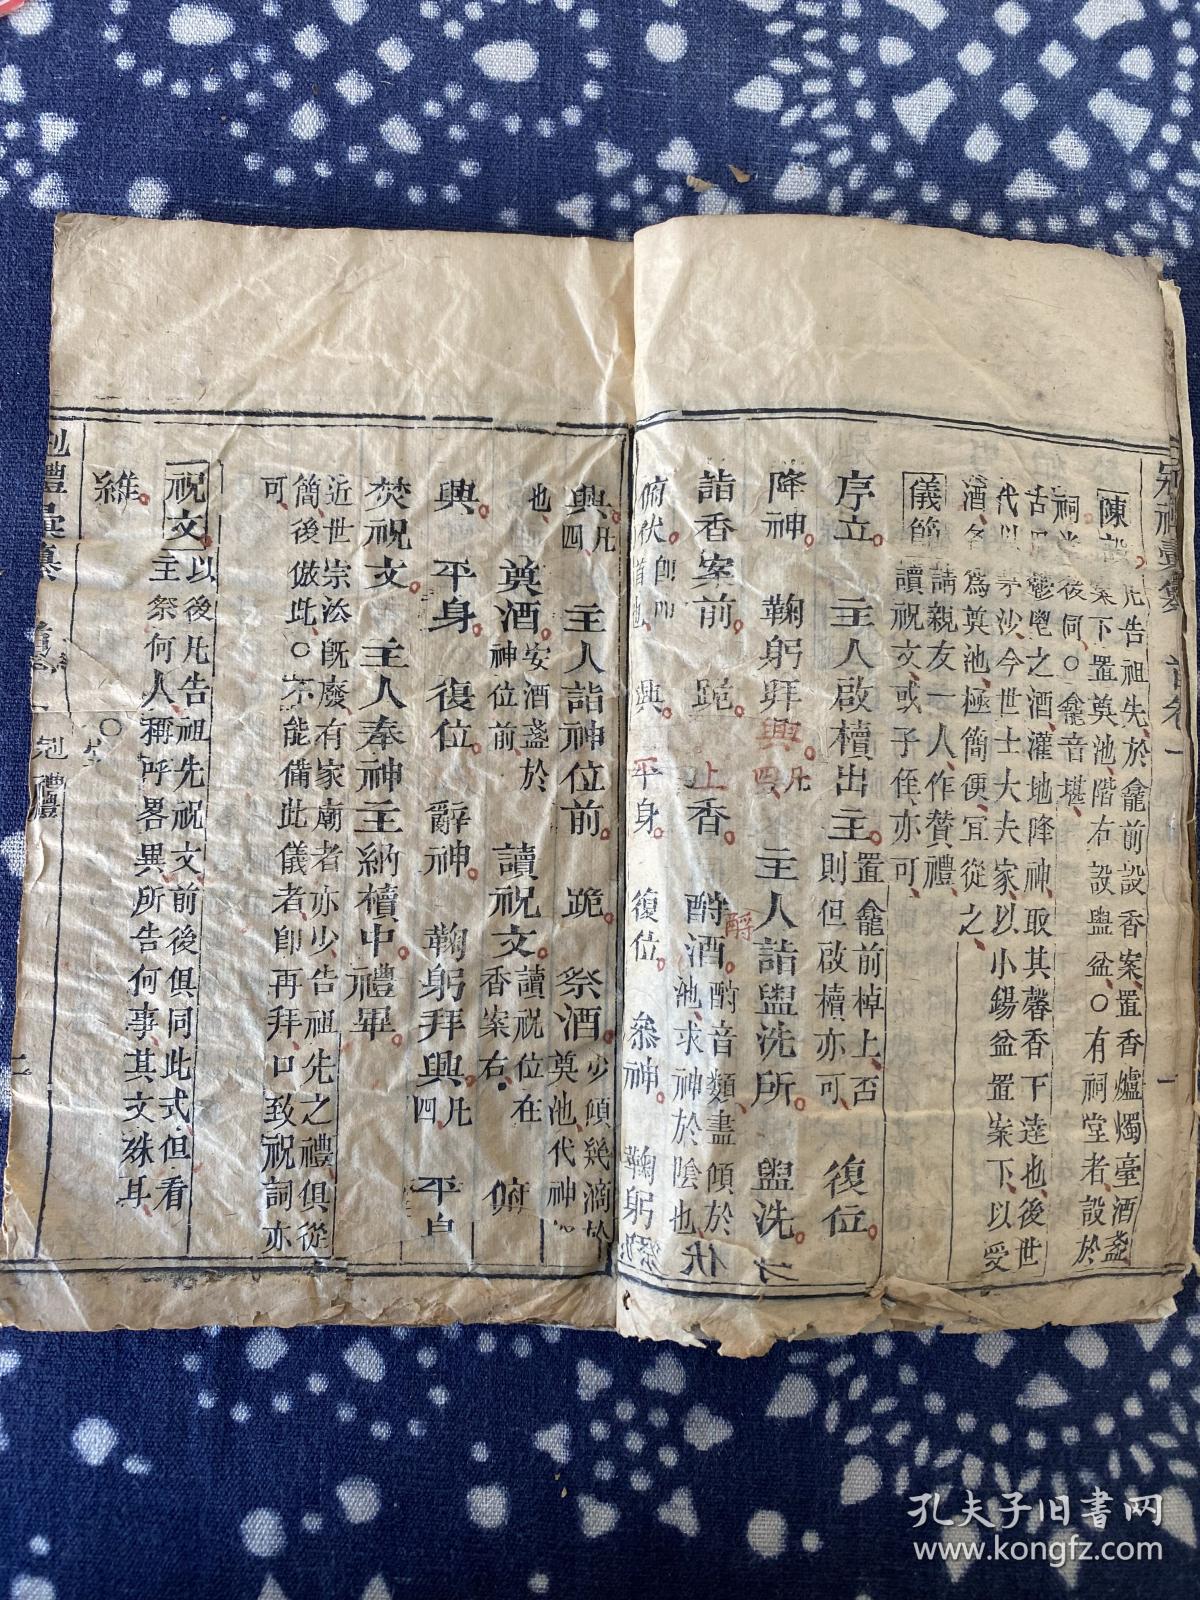 陳設凡告祖先於龕前設香案置香爐燭臺酒盞
案下置奠池階右設盥盆○有祠堂者設於
祠堂後倣○龕音堪
古用鬱鬯之酒灌地降神取其馨香下達也後世
代以茅沙今世士大夫家以小錫盆置案下以受
酒名為奠池極簡便宜從之
儀節請親友一人作贊禮
讀祝文或子侄亦可
序立 主人啟櫝出主置龕前棹上否則但啟櫝亦可 復位
降神 鞠躬拜興凡四 主人詣盥洗所 盥洗
詣香案前 跪 上香 酹酒酹音類盡傾於池求神於陰也
俯伏 興 平身 復位 叅神 鞠躬
興凡四 主人詣神位前 跪 祭酒少傾幾滴於奠池代神
也 奠酒安酒盞於神位前 讀祝文讀祝位在香案右 俯
興 平身 復位 辭神 鞠躬拜興凡四 平身
焚祝文 主人奉神主納櫝中禮畢
近世宗法既廢有家廟者亦少告祖先之禮俱從
簡後倣此○不能備此儀者即再拜口致祝詞亦
可
祝文以後凡告祖先祝文前後俱同此式但看
主祭何人稱呼畧異所告何事其文殊耳
維
禮彙纂 首卷 冠禮 二
孔夫子旧书网
www.kongfz.com